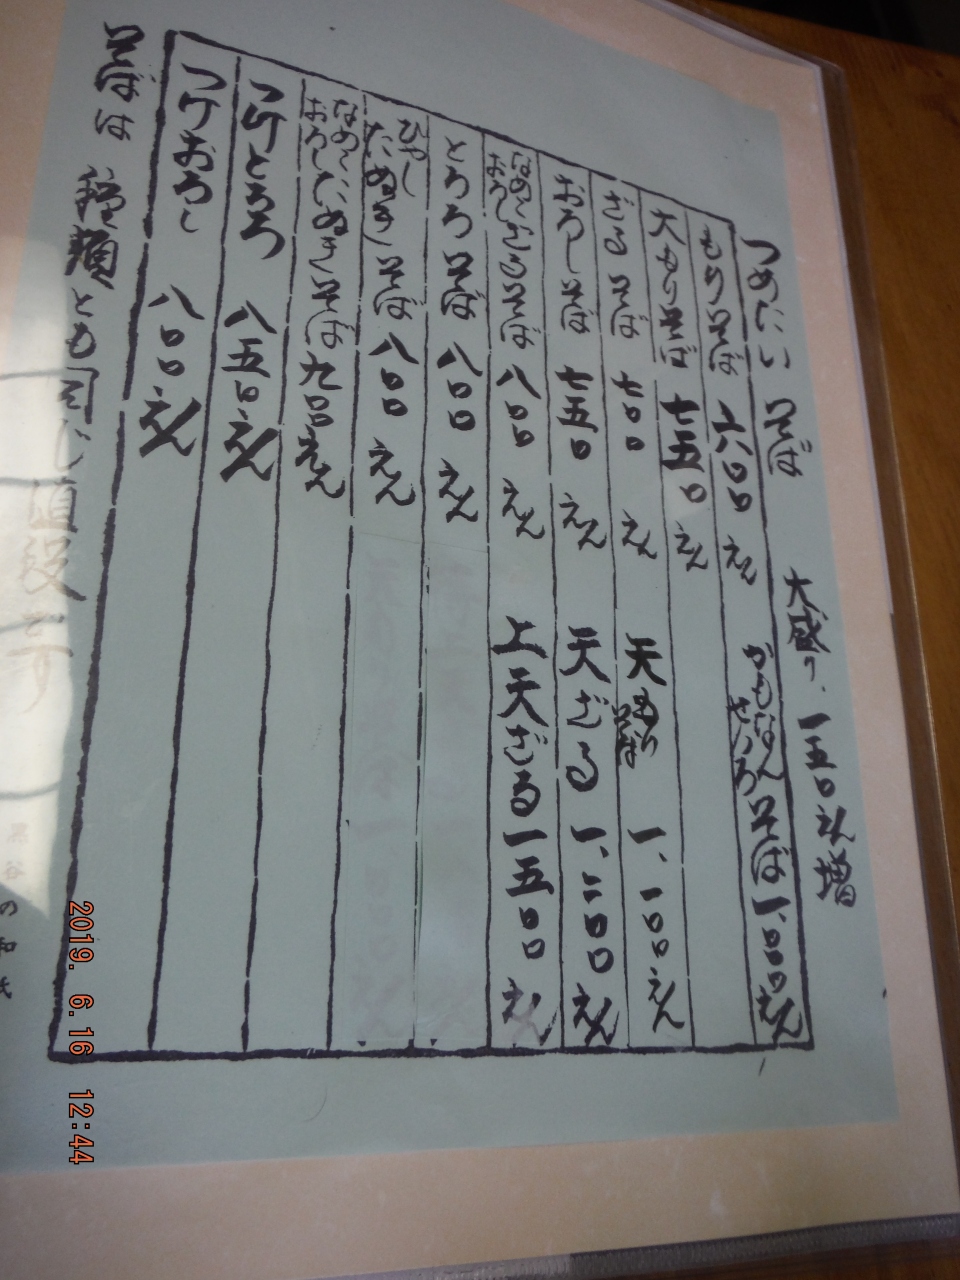 つめたい そば 大盛り、一五〇えん増
もりそば 六〇〇 えん
がもなんせいろそば 一、〇〇〇えん
大もりそば 七五〇 えん
ざるそば 七〇〇 えん
天もりそば 一、一〇〇えん
おろしそば 七五〇 えん
天ざる 一、二〇〇えん
なめこおろしざるそば 八〇〇 えん
上天ざる 一五〇〇えん
とろろそば 八〇〇 えん
ひやしたぬきそば 八〇〇 えん
なめこおろしたぬきそば 九〇〇えん
つけとろろ 八五〇えん
つけおろし 八〇〇えん
そばは 種類とも同じ値段です
黒谷の和氏
2019. 6.16 12:44